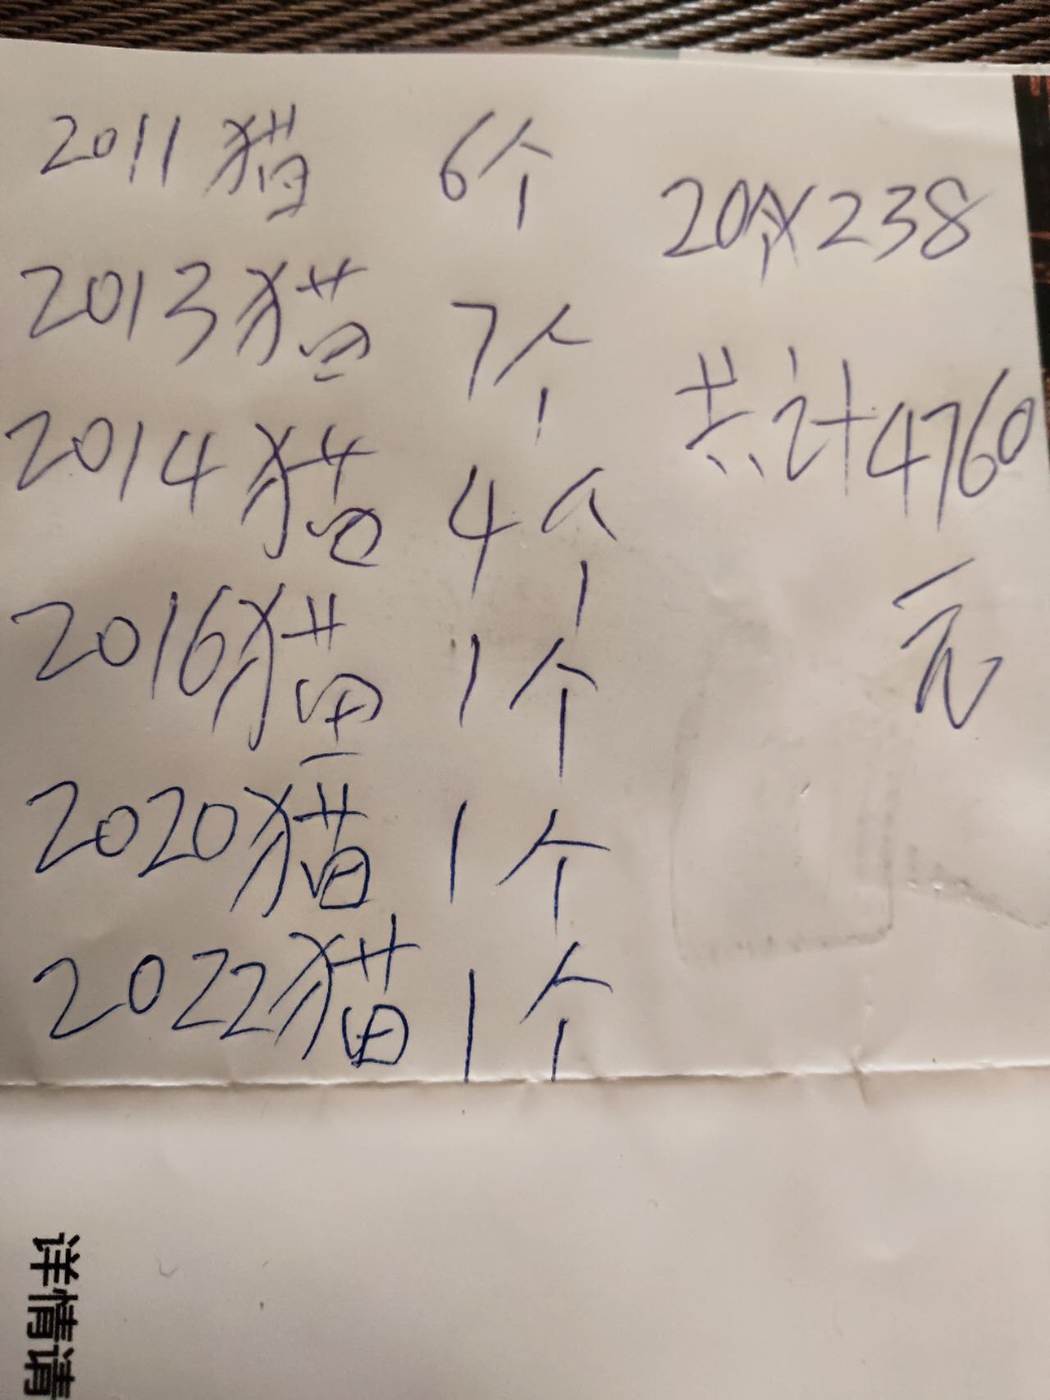 2011猫 6个
2013猫 7个
2014猫 4个
2016猫 1个
2020猫 1个
2022猫 1个
20个X238
共计4760
元
详情请